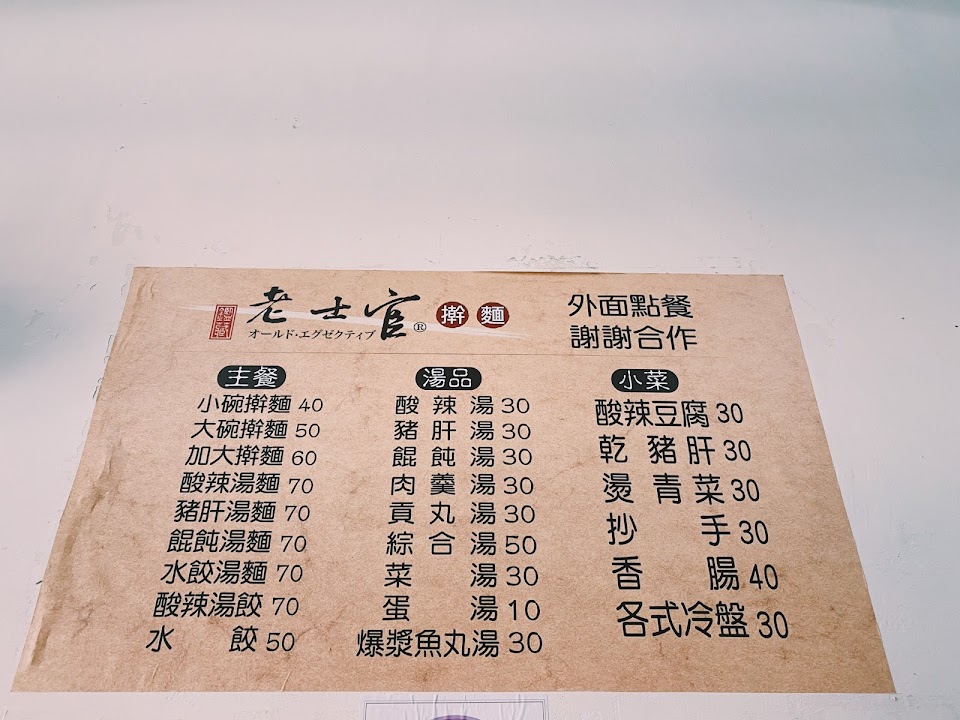 老士官®擀麵
オールド・エグゼクティブ
外面點餐
謝謝合作
主餐
小碗擀麵 40
大碗擀麵 50
加大擀麵 60
酸辣湯麵 70
豬肝湯麵 70
餛飩湯麵 70
水餃湯麵 70
酸辣湯餃 70
水餃 50
湯品
酸辣湯 30
豬肝湯 30
餛飩湯 30
肉羹湯 30
貢丸湯 30
綜合湯 50
菜湯 30
蛋湯 10
爆漿魚丸湯 30
小菜
酸辣豆腐 30
乾豬肝 30
燙青菜 30
抄手 30
香腸 40
各式冷盤 30